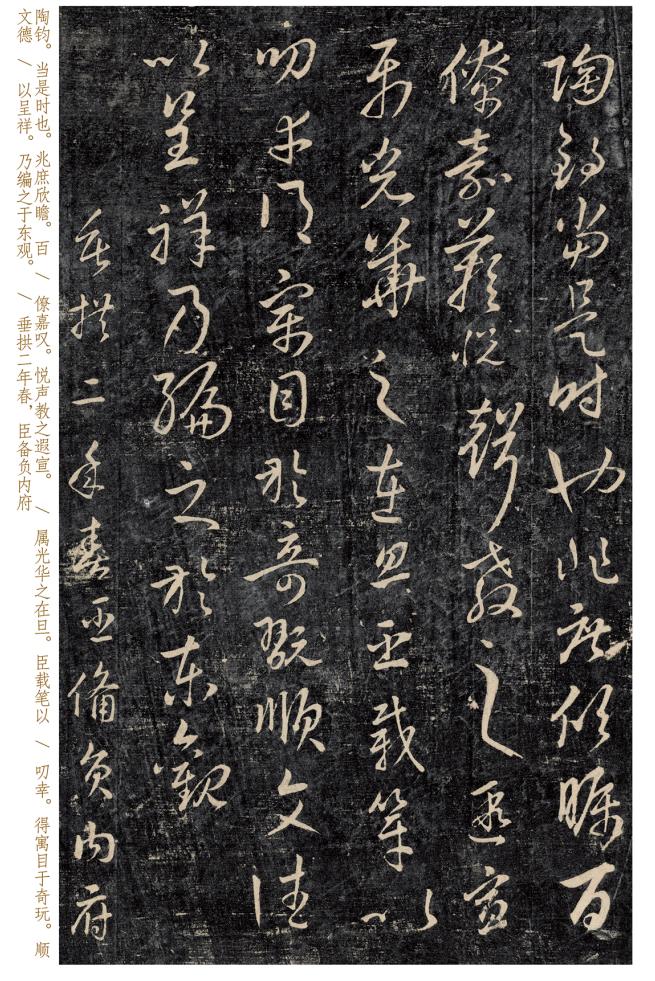 陶鈞當是時也兆庶欣矚百
僚嘉歎悅聲教之遐宣
屬光華之在旦臣載筆以
叨幸得寓目於奇翫順文德
以呈祥乃編之於東觀
垂拱二年春臣備負內府
陶钧。当是时也。兆庶欣瞻。百 / 僚嘉叹。悦声教之遐宣。 / 属光华之在旦。臣载笔以 / 叨幸。得寓目于奇玩。顺
文德 / 以呈祥。乃编之于东观。 / 垂拱二年春，臣备负内府